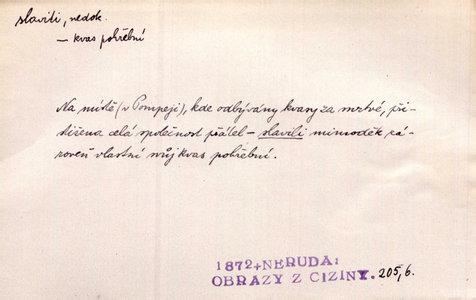 slaviti, nedok.
— kvas pohřební
Na místě (v Pompeji), kde odbývány kvasy za mrtvé, při-
stižena celá společnost přátel — slavili mimoděk zá-
roveň vlastní svůj kvas pohřební.
1872+NERUDA:
OBRAZY Z CIZINY. 205,6.